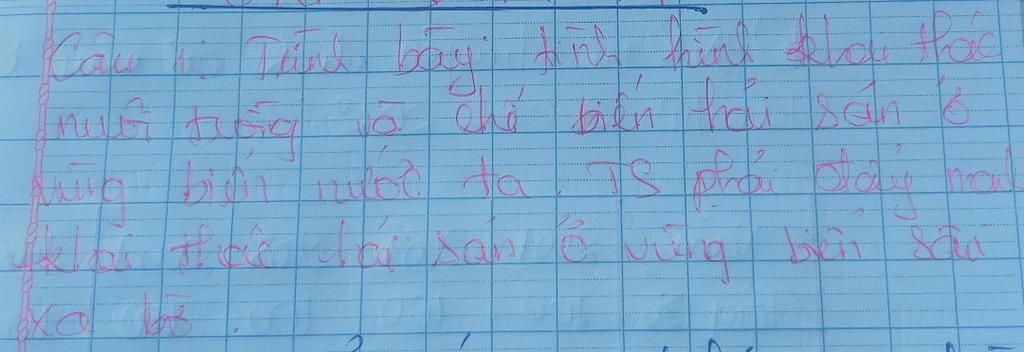 Câu 1: Trình bày tình hình khai thác
nuôi trồng và chế biến hải sản ở
vùng biển nước ta. TS phải đẩy mạnh
khai thác hải sản ở vùng biển sâu
xa bờ.